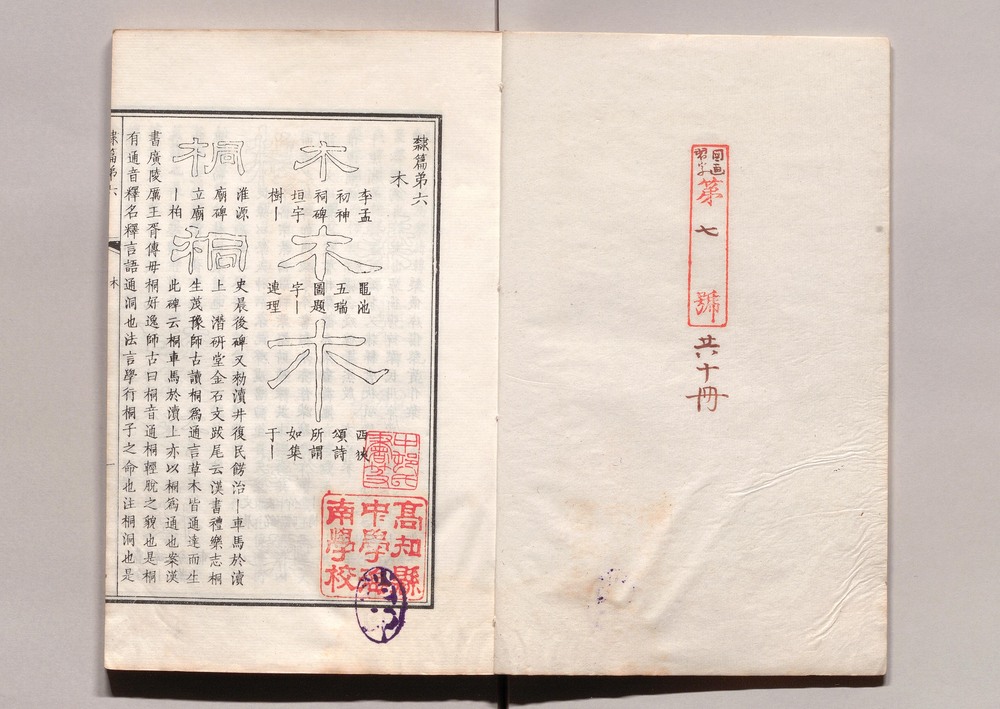 図画
習字
第七號
共十冊
隸篇第六
木
木
李孟
初神
祠碑
垣宇
樹丨
木
黽池
五瑞
圖題
字丨
連理
木
西狹
頌詩
所謂
如集
于丨
桐
淮源
廟碑
立廟
丨柏
桐
史晨後碑又勑瀆井復民餝治丨車馬於瀆
上 潛研堂金石文跋尾云漢書禮樂志桐
生茂豫師古讀桐爲通言草木皆通達而生
此碑云桐車馬於瀆上亦以桐爲通也案漢
書廣陵厲王胥傳毋桐好逸師古曰桐音通桐輕脫之貌也是桐
有通音釋名釋言語通洞也法言學行桐子之命也注桐洞也是
隸篇第六
木
一
高知縣
中學海
南學校